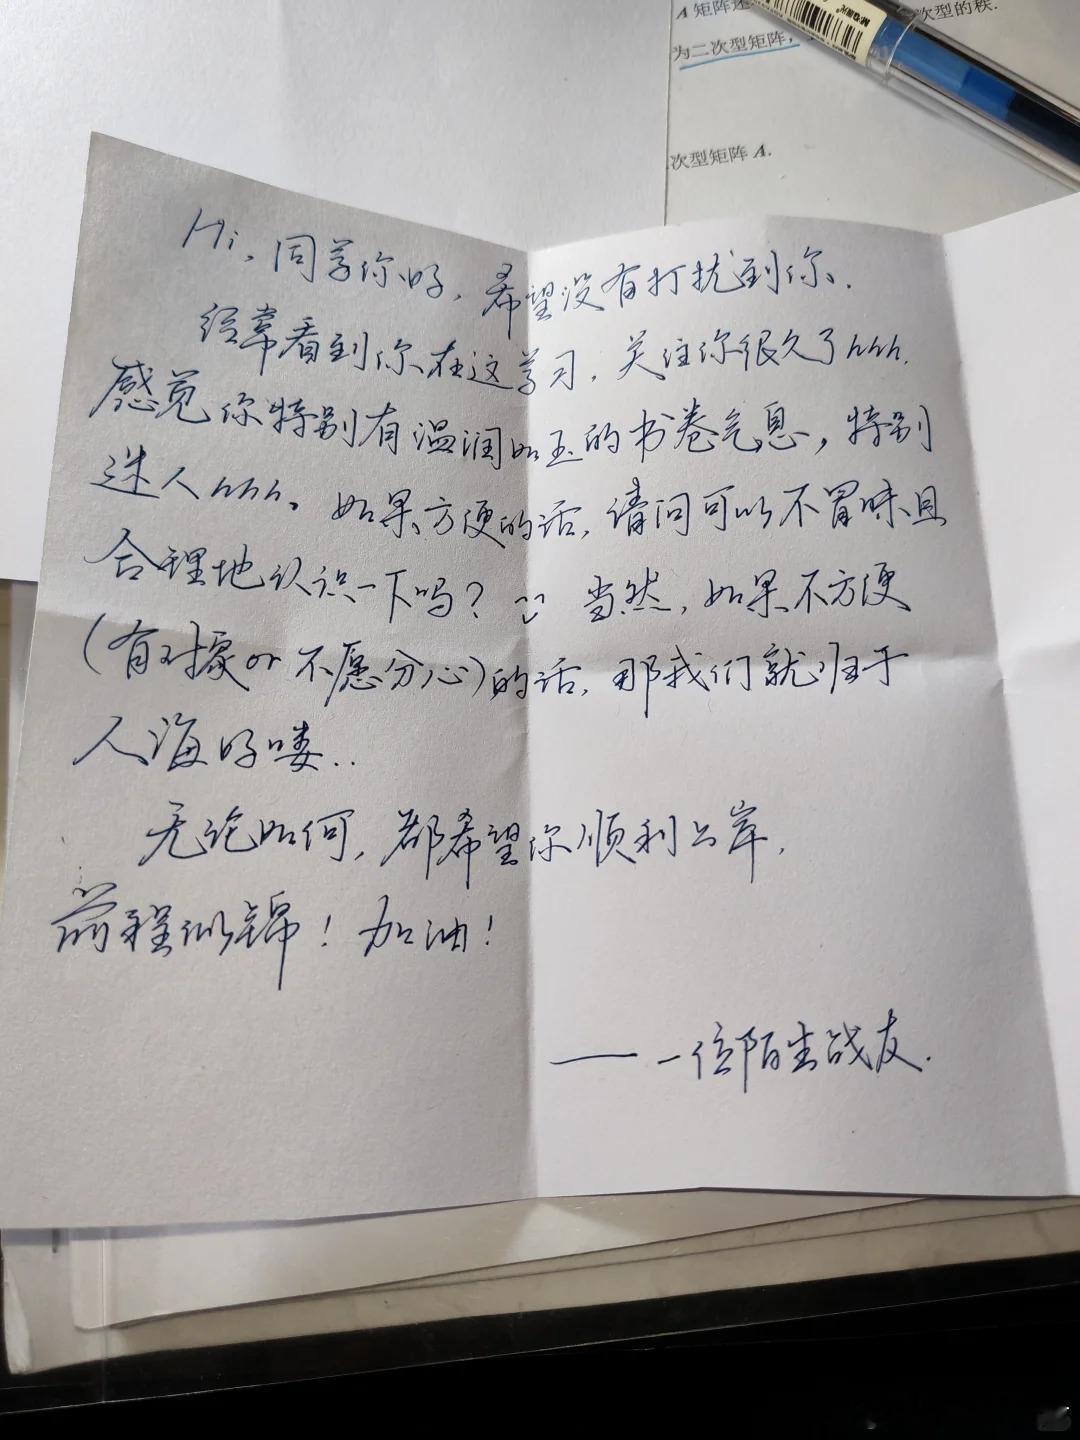 A矩阵
次型的秩.
为二次型矩阵,
次型矩阵 A.
Hi, 同学你好, 希望没有打扰到你.
经常看到你在这学习, 关注你很久了hhh.
感觉你特别有温润如玉的书卷气息, 特别
迷人hhh。如果方便的话, 请问可以不冒昧且
合理地认识一下吗? 当然, 如果不方便
(有对象or不愿分心)的话, 那我们就归于
人海好喽..
无论如何, 都希望你顺利上岸,
前程似锦! 加油!
—— 一位陌生战友.